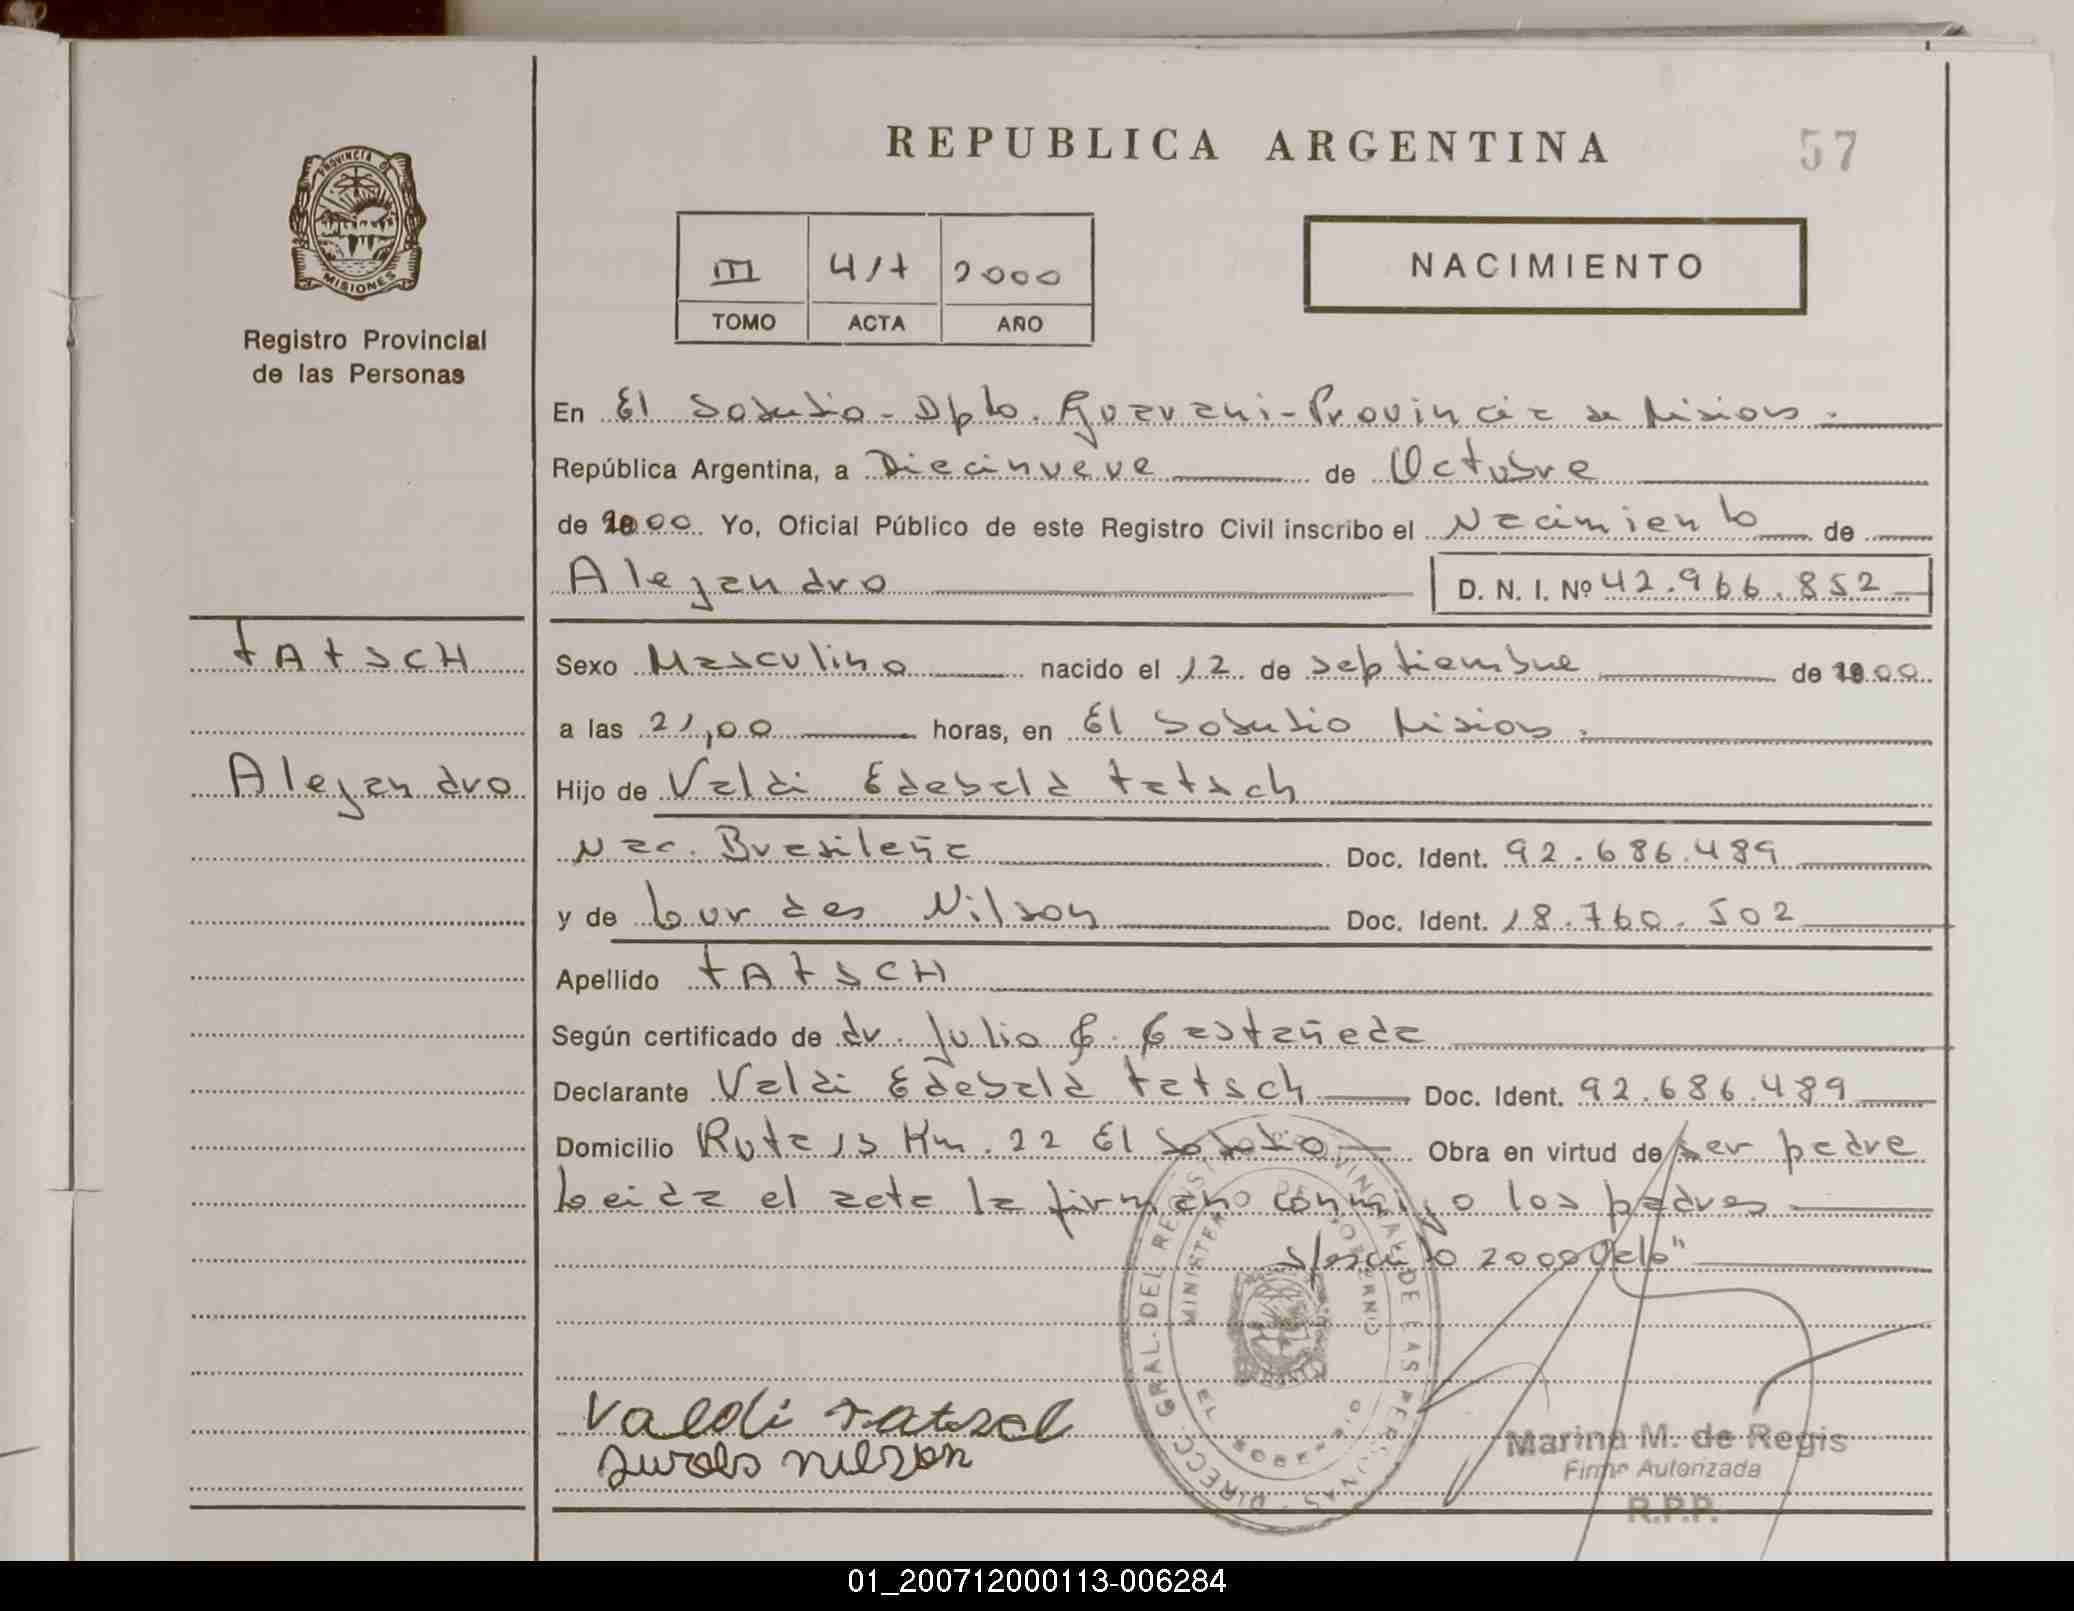 REPUBLICA ARGENTINA
57
PROVINCIA DE
MISIONES
Registro Provincial
de las Personas
III 417 2000
TOMO ACTA AÑO
NACIMIENTO
En El Soberbio - Dpto. Guarani - Provincia de Misiones.
República Argentina, a Diecinueve de Octubre
de 2000 Yo, Oficial Público de este Registro Civil inscribo el Nacimiento de
Alejandro D. N. I. Nº 42.966.852
TATSCH
Sexo Masculino nacido el 12 de Septiembre de 2000
a las 21,00 horas, en El Soberbio Misiones.
Alejandro
Hijo de Valdi Edebald Tatsch
Nac. Brasileña Doc. Ident. 92.686.489
y de Lourdes Nilson Doc. Ident. 18.760.502
Apellido TATSCH
Según certificado de dr. Julio C. Castañeda
Declarante Valdi Edebald Tatsch Doc. Ident. 92.686.489
Domicilio Ruta 13 Km. 22 El Soberbio Obra en virtud de ser padre
Leida el acta la firman conmigo los padres
2000
DIRECC. GRAL. DEL REGISTRO PROVINCIAL DE LAS PERSONAS
MINISTERIO DE GOBIERNO
EL SOBERBIO
Valdi Tatsch
nilson
Marina M. de Regis
Firma Autorizada
R.P.P.
01_200712000113-006284